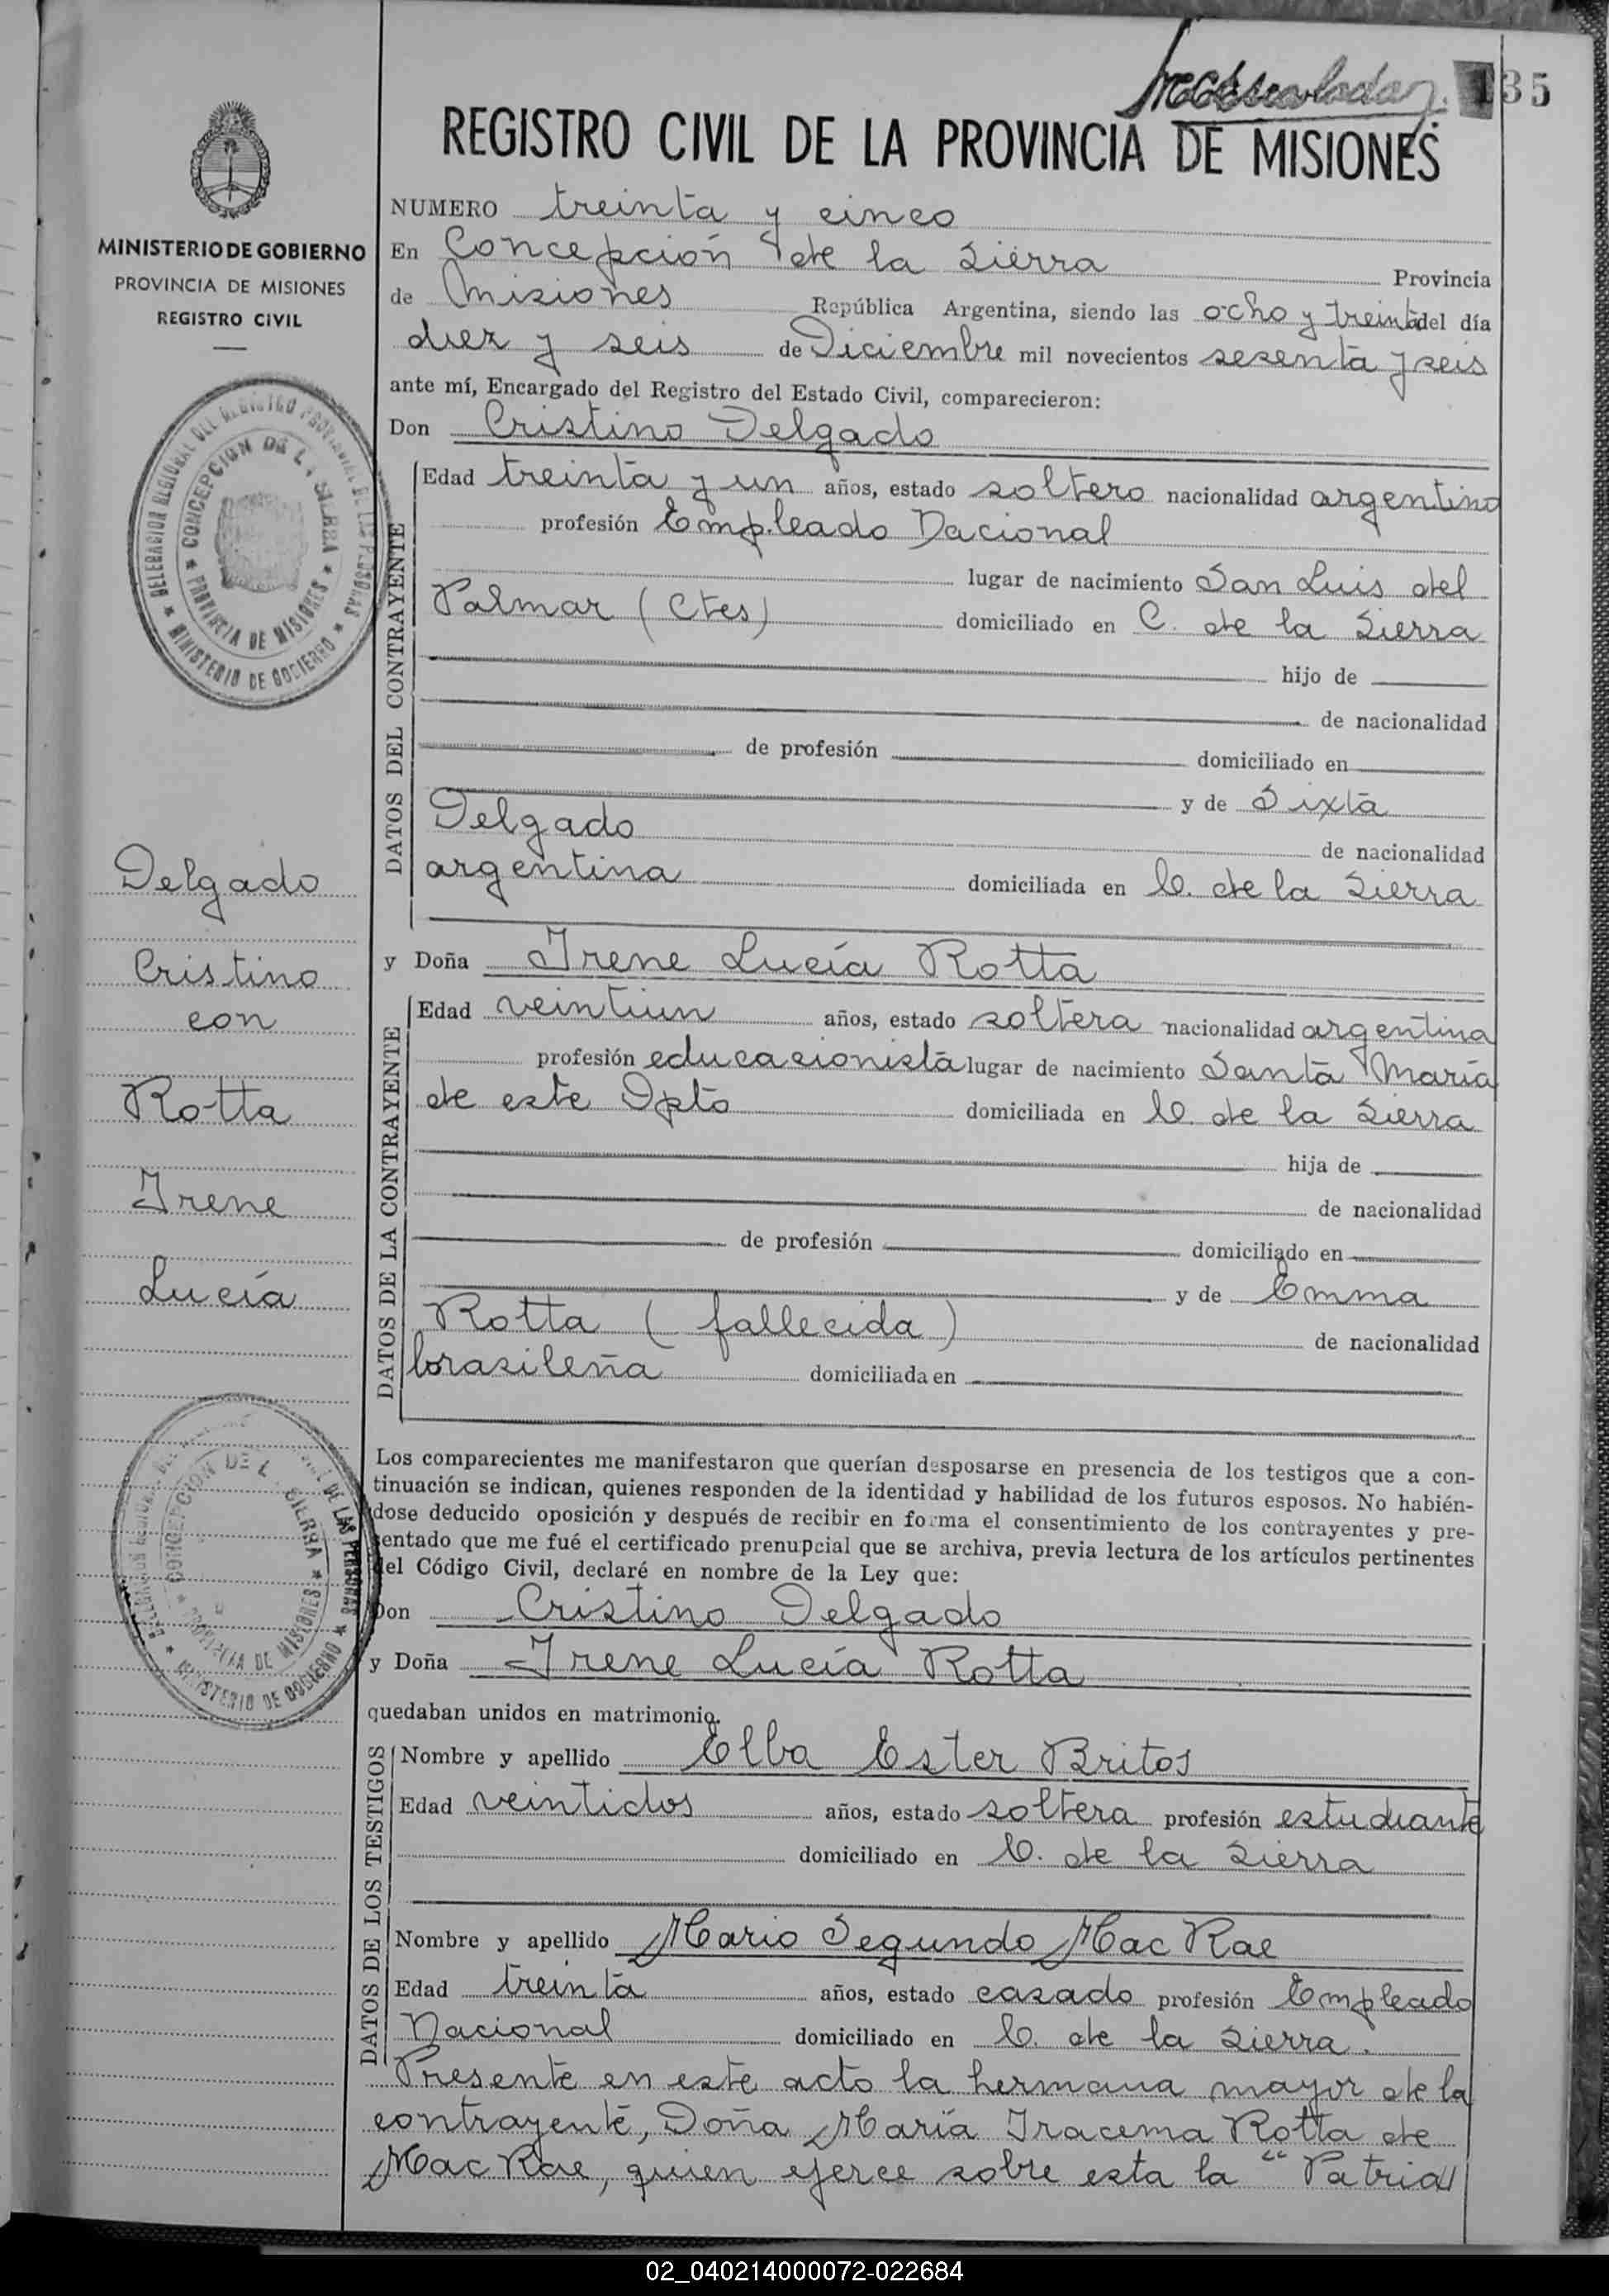 135
REGISTRO CIVIL DE LA PROVINCIA DE MISIONES
MINISTERIO DE GOBIERNO
PROVINCIA DE MISIONES
REGISTRO CIVIL
NUMERO treinta y cinco
En Concepción de la Sierra Provincia
de Misiones República Argentina, siendo las ocho y treinta del día
diez y seis de Diciembre mil novecientos sesenta y seis
ante mí, Encargado del Registro del Estado Civil, comparecieron:
Don Cristino Delgado
DATOS DEL CONTRAYENTE
Edad treinta y un años, estado soltero nacionalidad argentino
profesión Empleado Nacional
lugar de nacimiento San Luis del
Palmar (Ctes) domiciliado en C. de la Sierra
hijo de
de nacionalidad
de profesión domiciliado en
y de Sixta
Delgado de nacionalidad
argentina domiciliada en C. de la Sierra
y Doña Irene Lucía Rotta
DATOS DE LA CONTRAYENTE
Edad veintiun años, estado soltera nacionalidad argentina
profesión educacionista lugar de nacimiento Santa María
de este Dpto domiciliada en C. de la Sierra
hija de
de nacionalidad
de profesión domiciliado en
y de Emma
Rotta (fallecida) de nacionalidad
brasileña domiciliada en
Los comparecientes me manifestaron que querían desposarse en presencia de los testigos que a con-
tinuación se indican, quienes responden de la identidad y habilidad de los futuros esposos. No habién-
dose deducido oposición y después de recibir en forma el consentimiento de los contrayentes y pre-
sentado que me fué el certificado prenupcial que se archiva, previa lectura de los artículos pertinentes
del Código Civil, declaré en nombre de la Ley que:
Don Cristino Delgado
y Doña Irene Lucía Rotta
quedaban unidos en matrimonio.
DATOS DE LOS TESTIGOS
Nombre y apellido Elba Ester Britos
Edad veintidos años, estado soltera profesión estudiante
domiciliado en C. de la Sierra
Nombre y apellido Mario Segundo Mac Rae
Edad treinta años, estado casado profesión Empleado
Nacional domiciliado en C. de la Sierra.
Presente en este acto la hermana mayor de la
contrayente, Doña María Iracema Rotta de
Mac Rae, quien ejerce sobre esta la "Patria
Delgado
Cristino
con
Rotta
Irene
Lucía
CONCEPCION DE LA SIERRA
PROVINCIA DE MISIONES
MINISTERIO DE GOBIERNO
CONCEPCION DE LA SIERRA
PROVINCIA DE MISIONES
MINISTERIO DE GOBIERNO
DE LAS PERSONAS
02_040214000072-022684